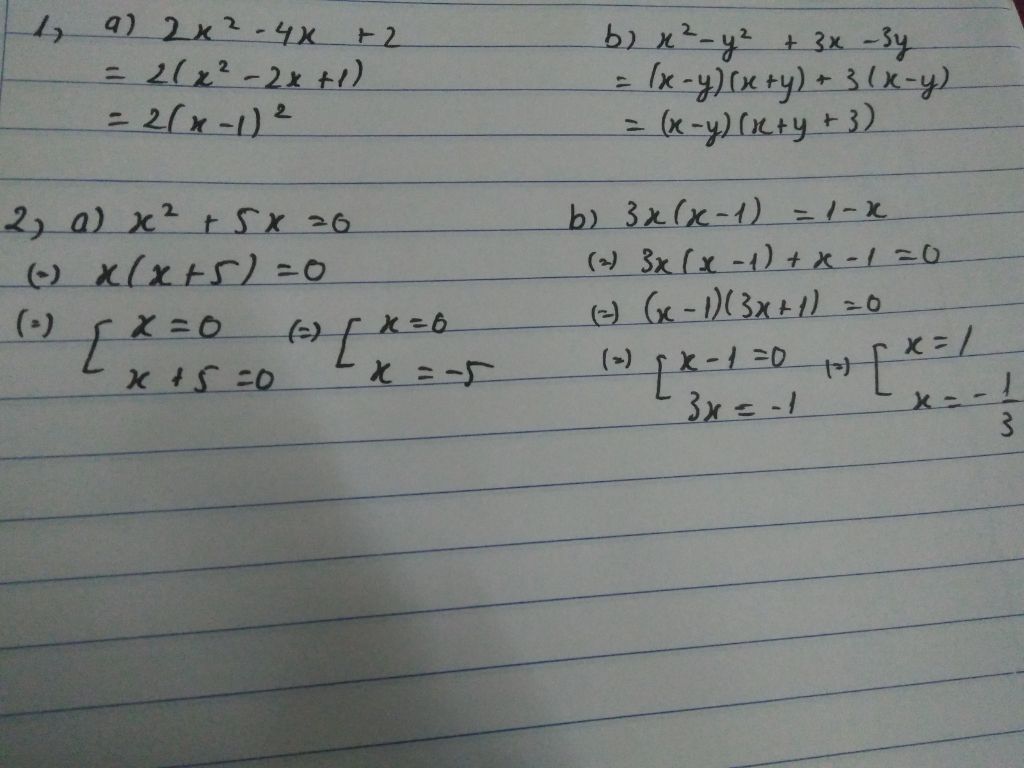 1, a) 2x² - 4x + 2
= 2(x² - 2x + 1)
= 2(x - 1)²
b) x² - y² + 3x - 3y
= (x - y)(x + y) + 3(x - y)
= (x - y)(x + y + 3)
2, a) x² + 5x = 0
(=) x(x + 5) = 0
(=) [ x = 0 (=) [ x = 0
x + 5 = 0 x = -5
b) 3x(x - 1) = 1 - x
(=) 3x(x - 1) + x - 1 = 0
(=) (x - 1)(3x + 1) = 0
(=) [ x - 1 = 0 (=) [ x = 1
3x = -1 x = -1/3